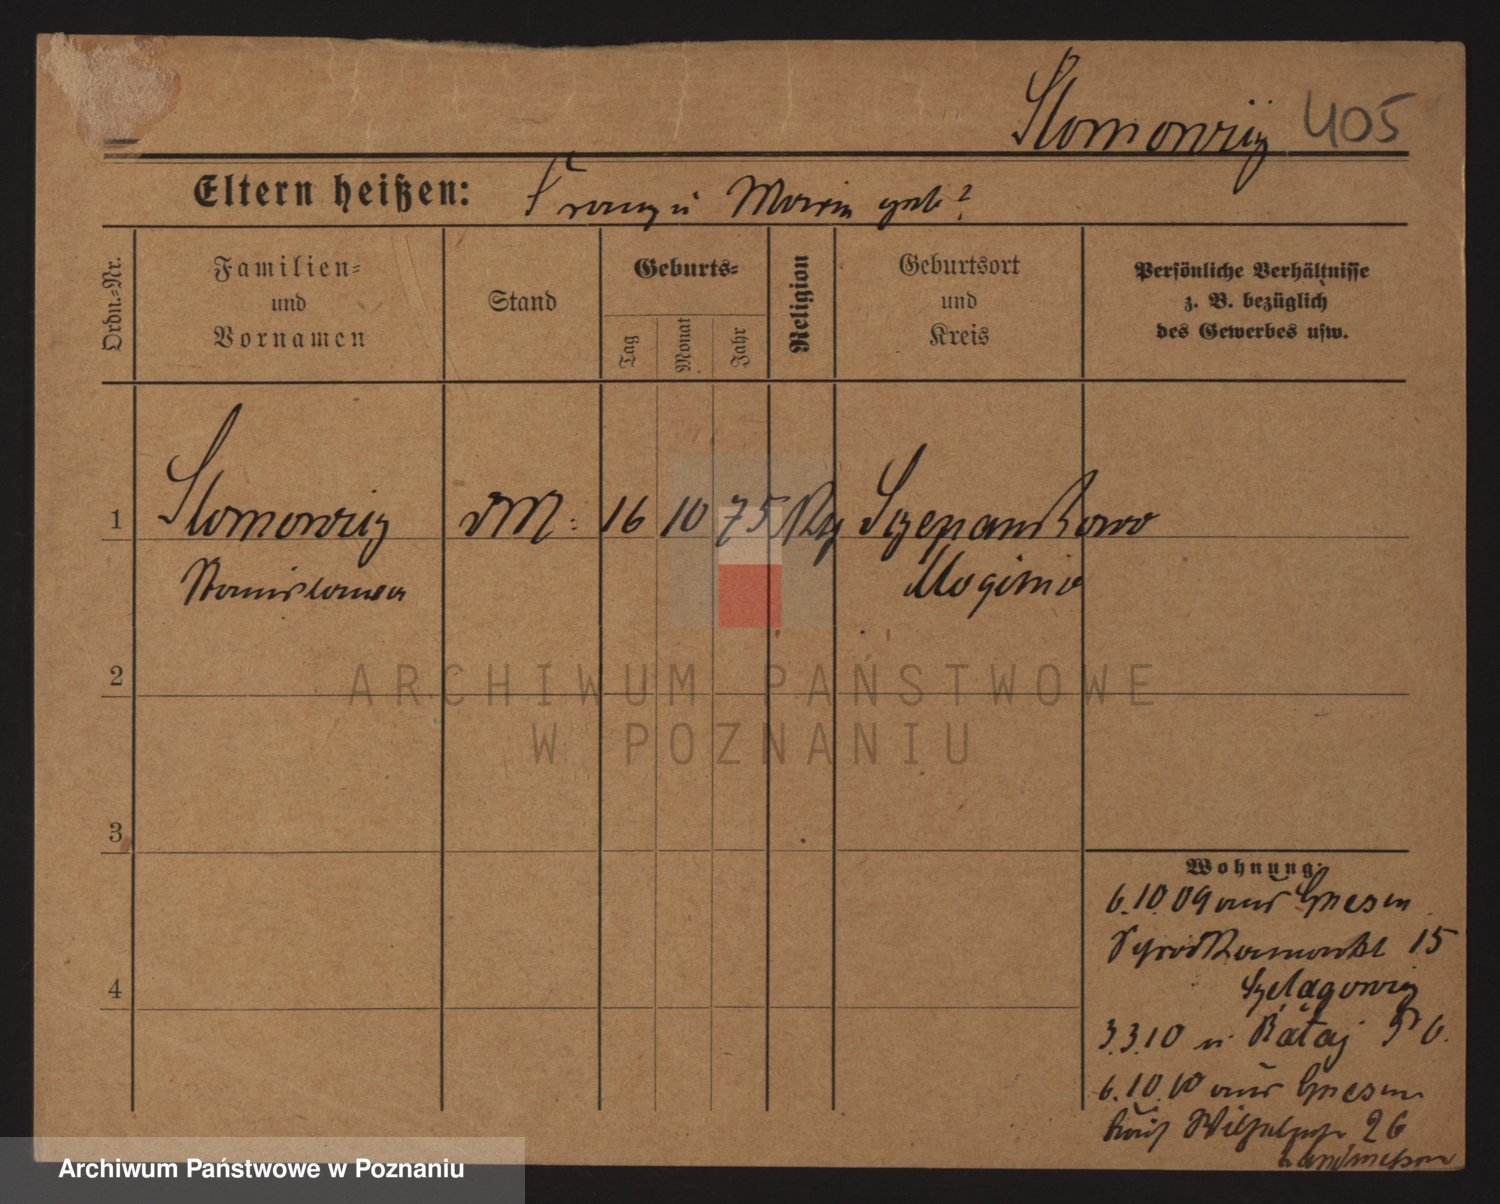 Slomowicz 405
Eltern heißen: Franz u Maria geb?
Ordn.-Nr.
Familien-
und
Vornamen
Stand
Geburts-
Tag
Monat
Jahr
Religion
Geburtsort
und
Kreis
Persönliche Verhältnisse
z. B. bezüglich
des Gewerbes usw.
1 Slomowicz 16 10 75 Szepankowo
Stanislawa Mogilno
2
3
4
Wohnung:
6.10.09 aus Gnesen
15
Szelagowicz
3.3.10 n Rataj 6.
6.10.10 aus Gnesen
26
ARCHIWUM PAŃSTWOWE
W POZNANIU
Archiwum Państwowe w Poznaniu